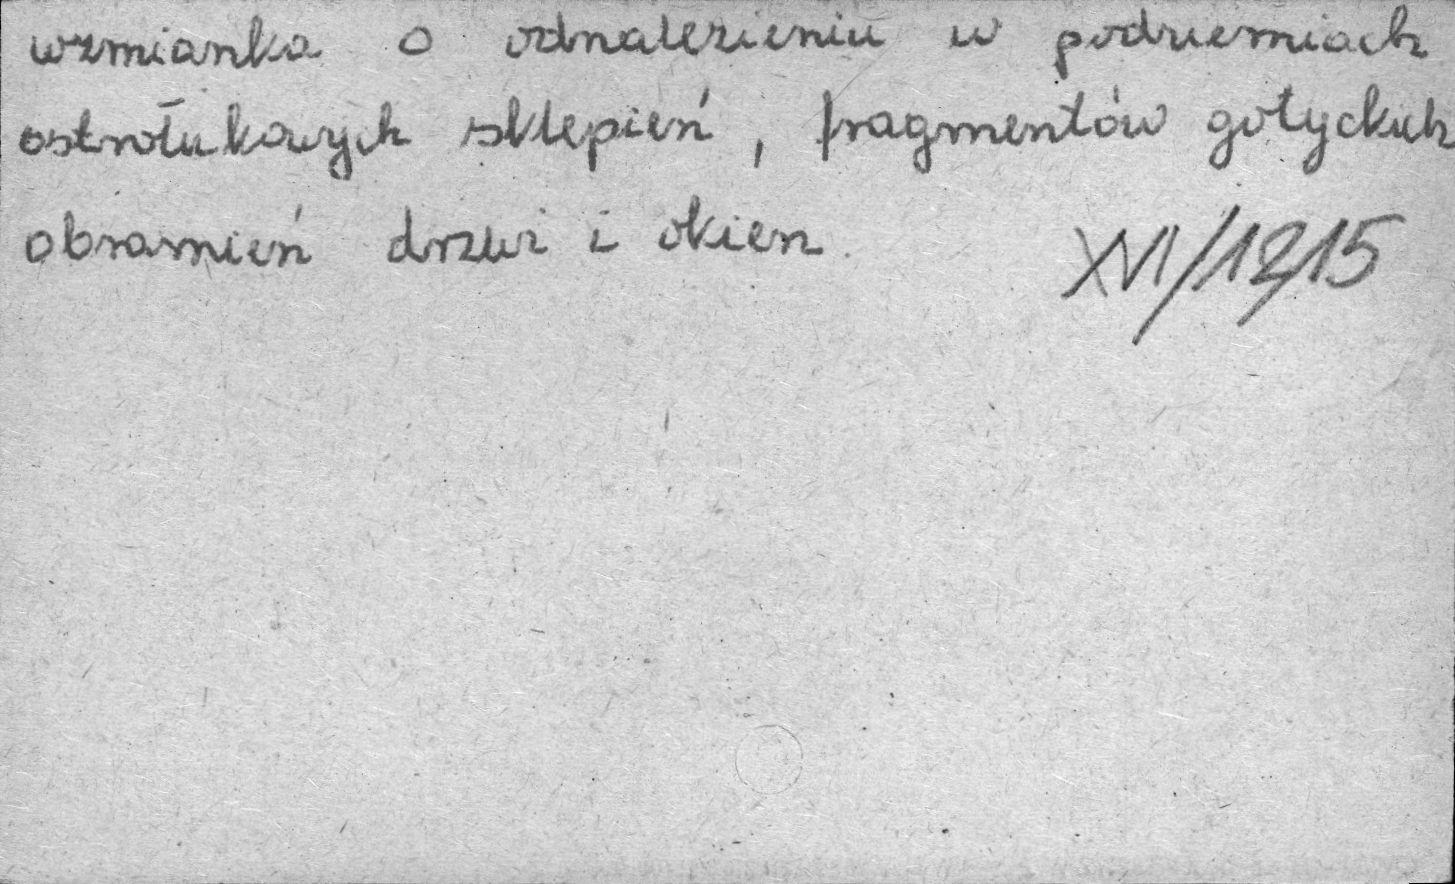 wzmianka o odnalezieniu w podziemiach
ostrołukowych sklepień, fragmentów gotyckich
obramień drzwi i okien.
XVI/1215